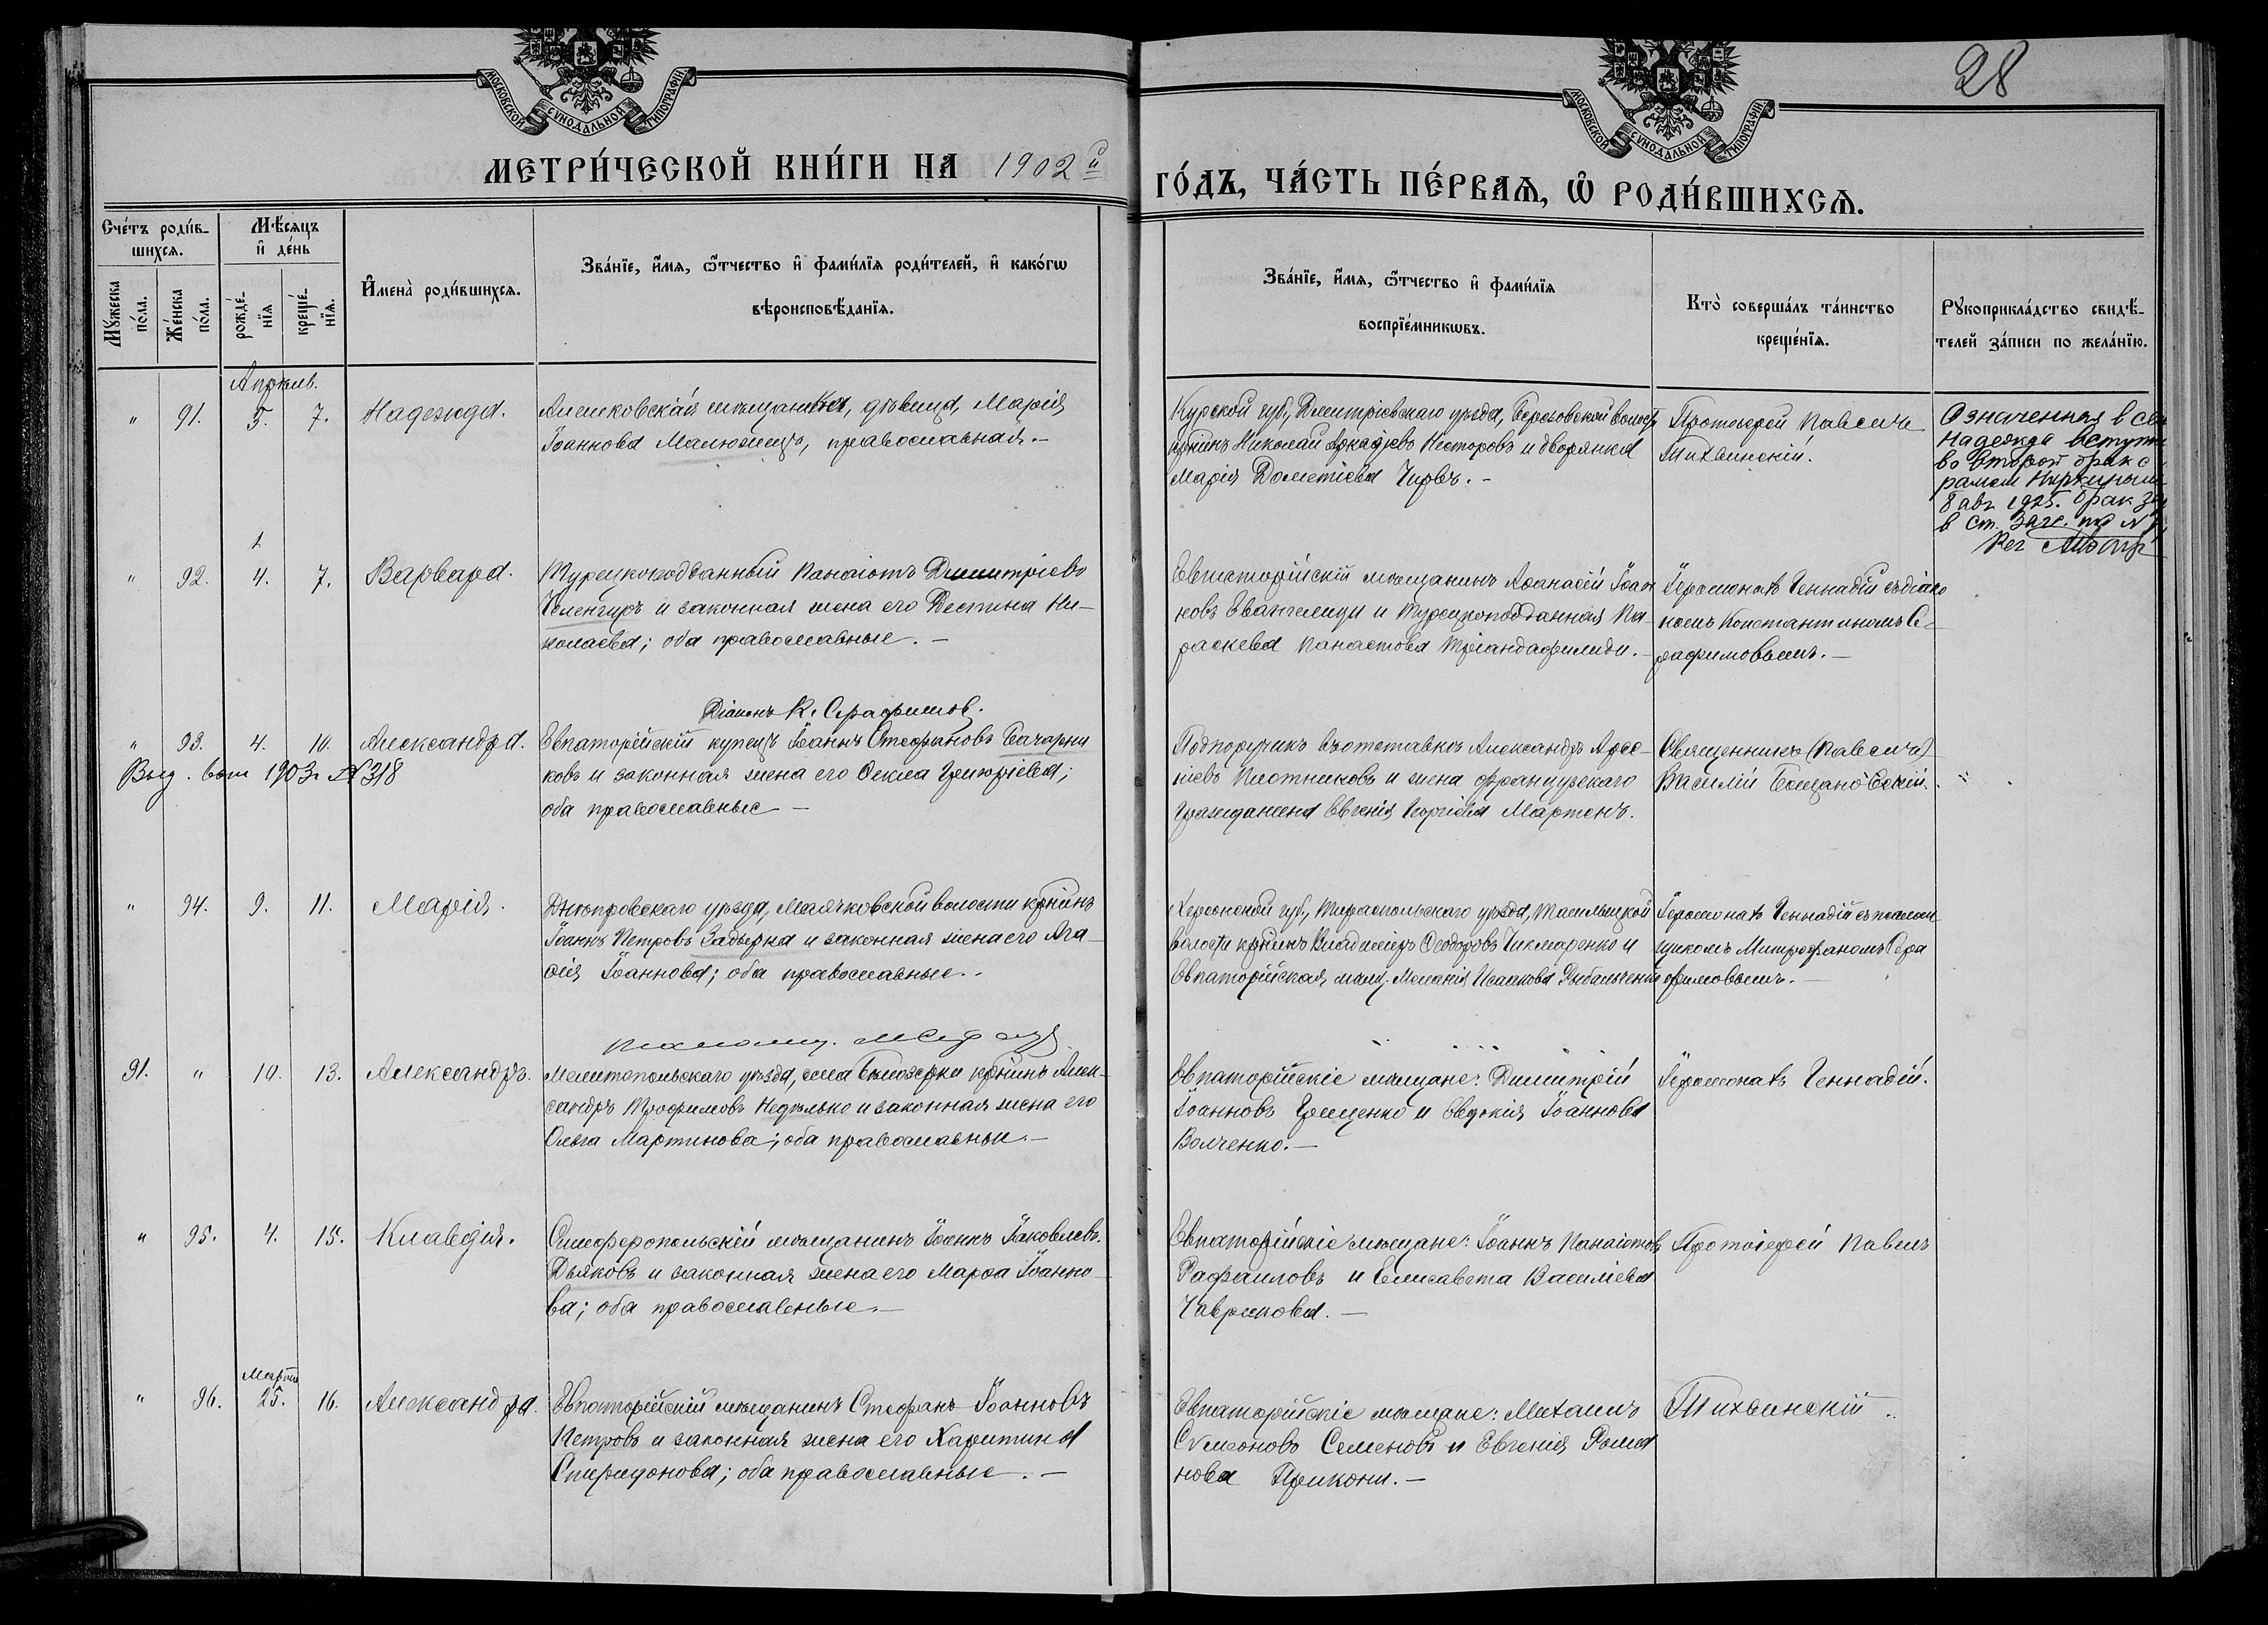 28
МОСКОВСКОЙ СУНОДАЛЬНОЙ ТИПОГРАФІИ
МОСКОВСКОЙ СУНОДАЛЬНОЙ ТИПОГРАФІИ
МЕТРИ́ЧЕСКОЙ КНИ́ГИ НА 1902 й
ГО́ДЪ, ЧА́СТЬ ПЕ́РВАѦ, Ѡ҆ РОДИ́ВШИХСѦ.
Сче́тъ роди́в-
шихсѧ.
Мꙋ́жеска
по́ла.
Же́нска
по́ла.
Мѣ́сяцъ
и҆ де́нь
рожде́-
нїѧ
креще́-
нїѧ.
И҆мена̀ роди́вшихсѧ.
Зва́нїе, и҆́мѧ, ѻ҆́тчество и҆ фами́лїѧ роди́телей, и҆ како́гѡ
вѣроисповѣ́данїѧ.
Зва́нїе, и҆́мѧ, ѻ҆́тчество и҆ фами́лїѧ
воспрїе́мникѡвъ.
Кто̀ соверша́лъ та́инство
креще́нїѧ.
Рꙋкоприкла́дство свидѣ́-
телей за́писи по жела́нїю.
Апрѣль.
" 91. 5. 7. Надежда.
Алешковская мѣщанка, дѣвица, Марія
Іоаннова, православная.–
Курской губ., Дмитріевскаго уѣзда, Березовской волост
крнинъ Николай Аркадьевъ Несторовъ и дворянка
Марія Дометіева Чирвъ.–
Протоіерей Павелъ
Тихвинскій.
Означенная в
Надежда вступи
во второй брак с
8 авг 1925. брак
в ст. Загс. по №
" 92. 4. 7. Варвара.
Турецкоподданный Панаіотъ Димитріевъ
Челенгиръ и законная жена его Деспина Ни-
колаева; оба православные.–
Евпаторійскій мѣщанинъ Аѳанасій Іоан
новъ Евангелиди и Турецкоподданная Па-
раскева Панаетова Тріандафилиди.–
Іеромонахъ Геннадій съ діако
номъ Константиномъ Се-
рафимовымъ.–
Діаконъ К. Серафимов.
" 93. 4. 10. Александра.
Выд. 1903 г №318
Евпаторійскій купецъ Іоаннъ Стефановъ Бачарни
ковъ и законная жена его Ѳекла Григоріева;
оба православные –
Подпоручикъ въ отставкѣ Александръ Арсе-
ніевъ Плотниковъ и жена французскаго
гражданина Евгенія Георгіева Мартенъ.
Священникъ (Павелъ)
Василій
" 94. 9. 11. Марія.
Днѣпровскаго уѣзда, Маячковской волости крнинъ
Іоаннъ Петровъ Задырка и законная жена его Ага-
ѳія Іоаннова; оба православные.–
Херсонской губ., Тираспольскаго уѣзда,
волости крнинъ Владиміръ Ѳеодоровъ Чикмаренко и
Евпаторійская мѣщ. Меланія Исаакова
Іеромонахъ Геннадій съ псалом
щикомъ Митрофаномъ Сера
фимовымъ.–
91. " 10. 13. Александръ.
Мелитопольскаго уѣзда, села Бѣлозерки крнинъ Алек-
сандръ Трофимовъ Недѣлько и законная жена его
Ольга Мартинова; оба православные.–
Евпаторійскіе мѣщане: Димитрій
Іоанновъ Грищенко и Евдокія Іоаннова
Волченко.–
Іеромонахъ Геннадій.
" 95. 4. 15. Клавдія.
Симферопольскій мѣщанинъ Іоаннъ Іаковлевъ
Дьяковъ и законная жена его Марѳа Іоанно-
ва; оба православные.–
Евпаторійскіе мѣщане: Іоаннъ Панаіотовъ
Рафаиловъ и Елисавета Василіева
Гаврикова.–
Протоіерей Павелъ
Марта
" 96. 25. 16. Александра.
Евпаторійскій мѣщанинъ Стефанъ Іоанновъ
Петровъ и законная жена его Харитина
Спиридонова; оба православные.–
Евпаторійскіе мѣщане: Михаилъ
Сѵмеоновъ Семеновъ и Евгенія Рома
нова Прикони.–
Тихвинскій.